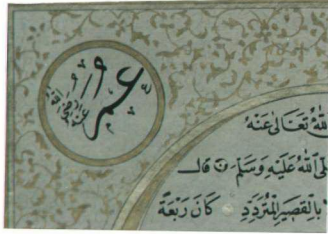 عمر
رضي الله عنه
الله تعالى عنه
الله عليه وسلم قال
بالقصير المتردد كان ربعة